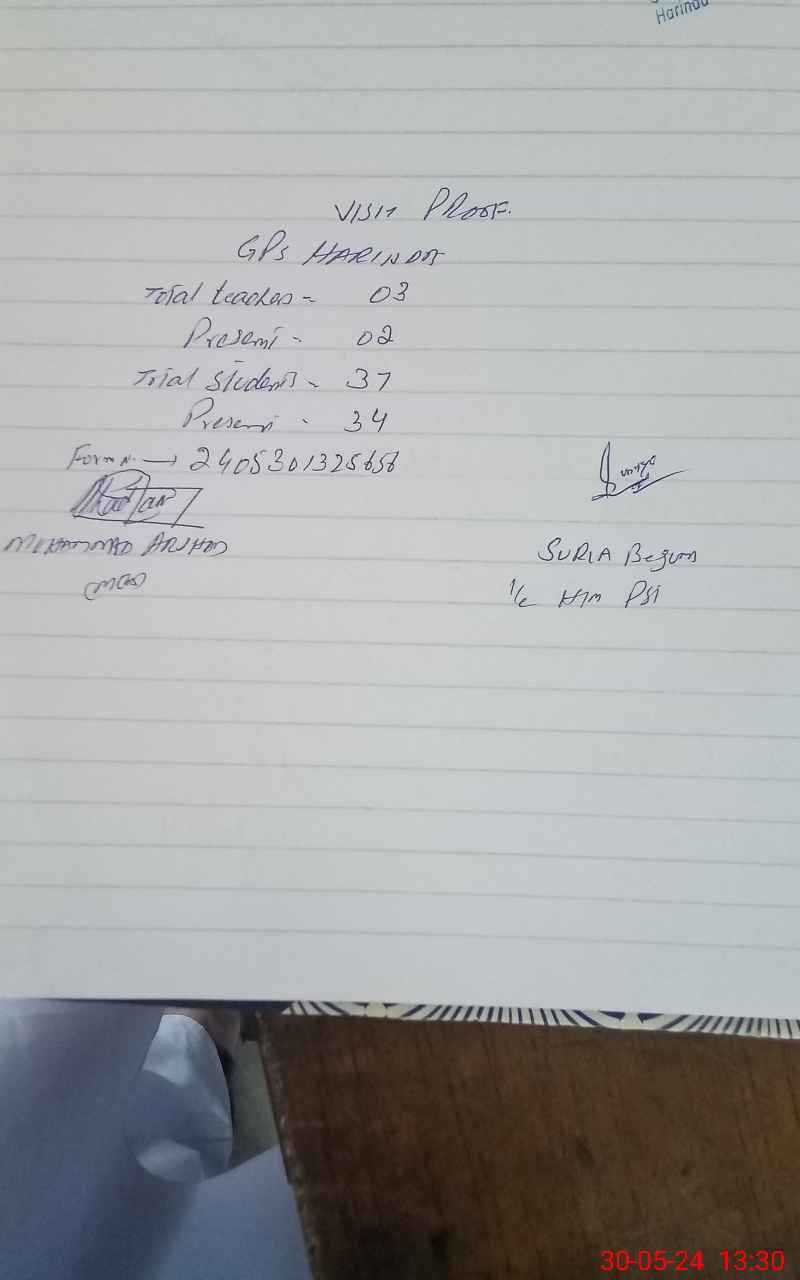 Harinda
VISIT PROOF.
GPS HARINDA
Total teachers = 03
Present - 02
Total students = 37
Present - 34
Form N. → 2405301325656
MOHAMMAD ARSHAD
SURIA Begum
I/c HTM PSI
30-05-24 13:30